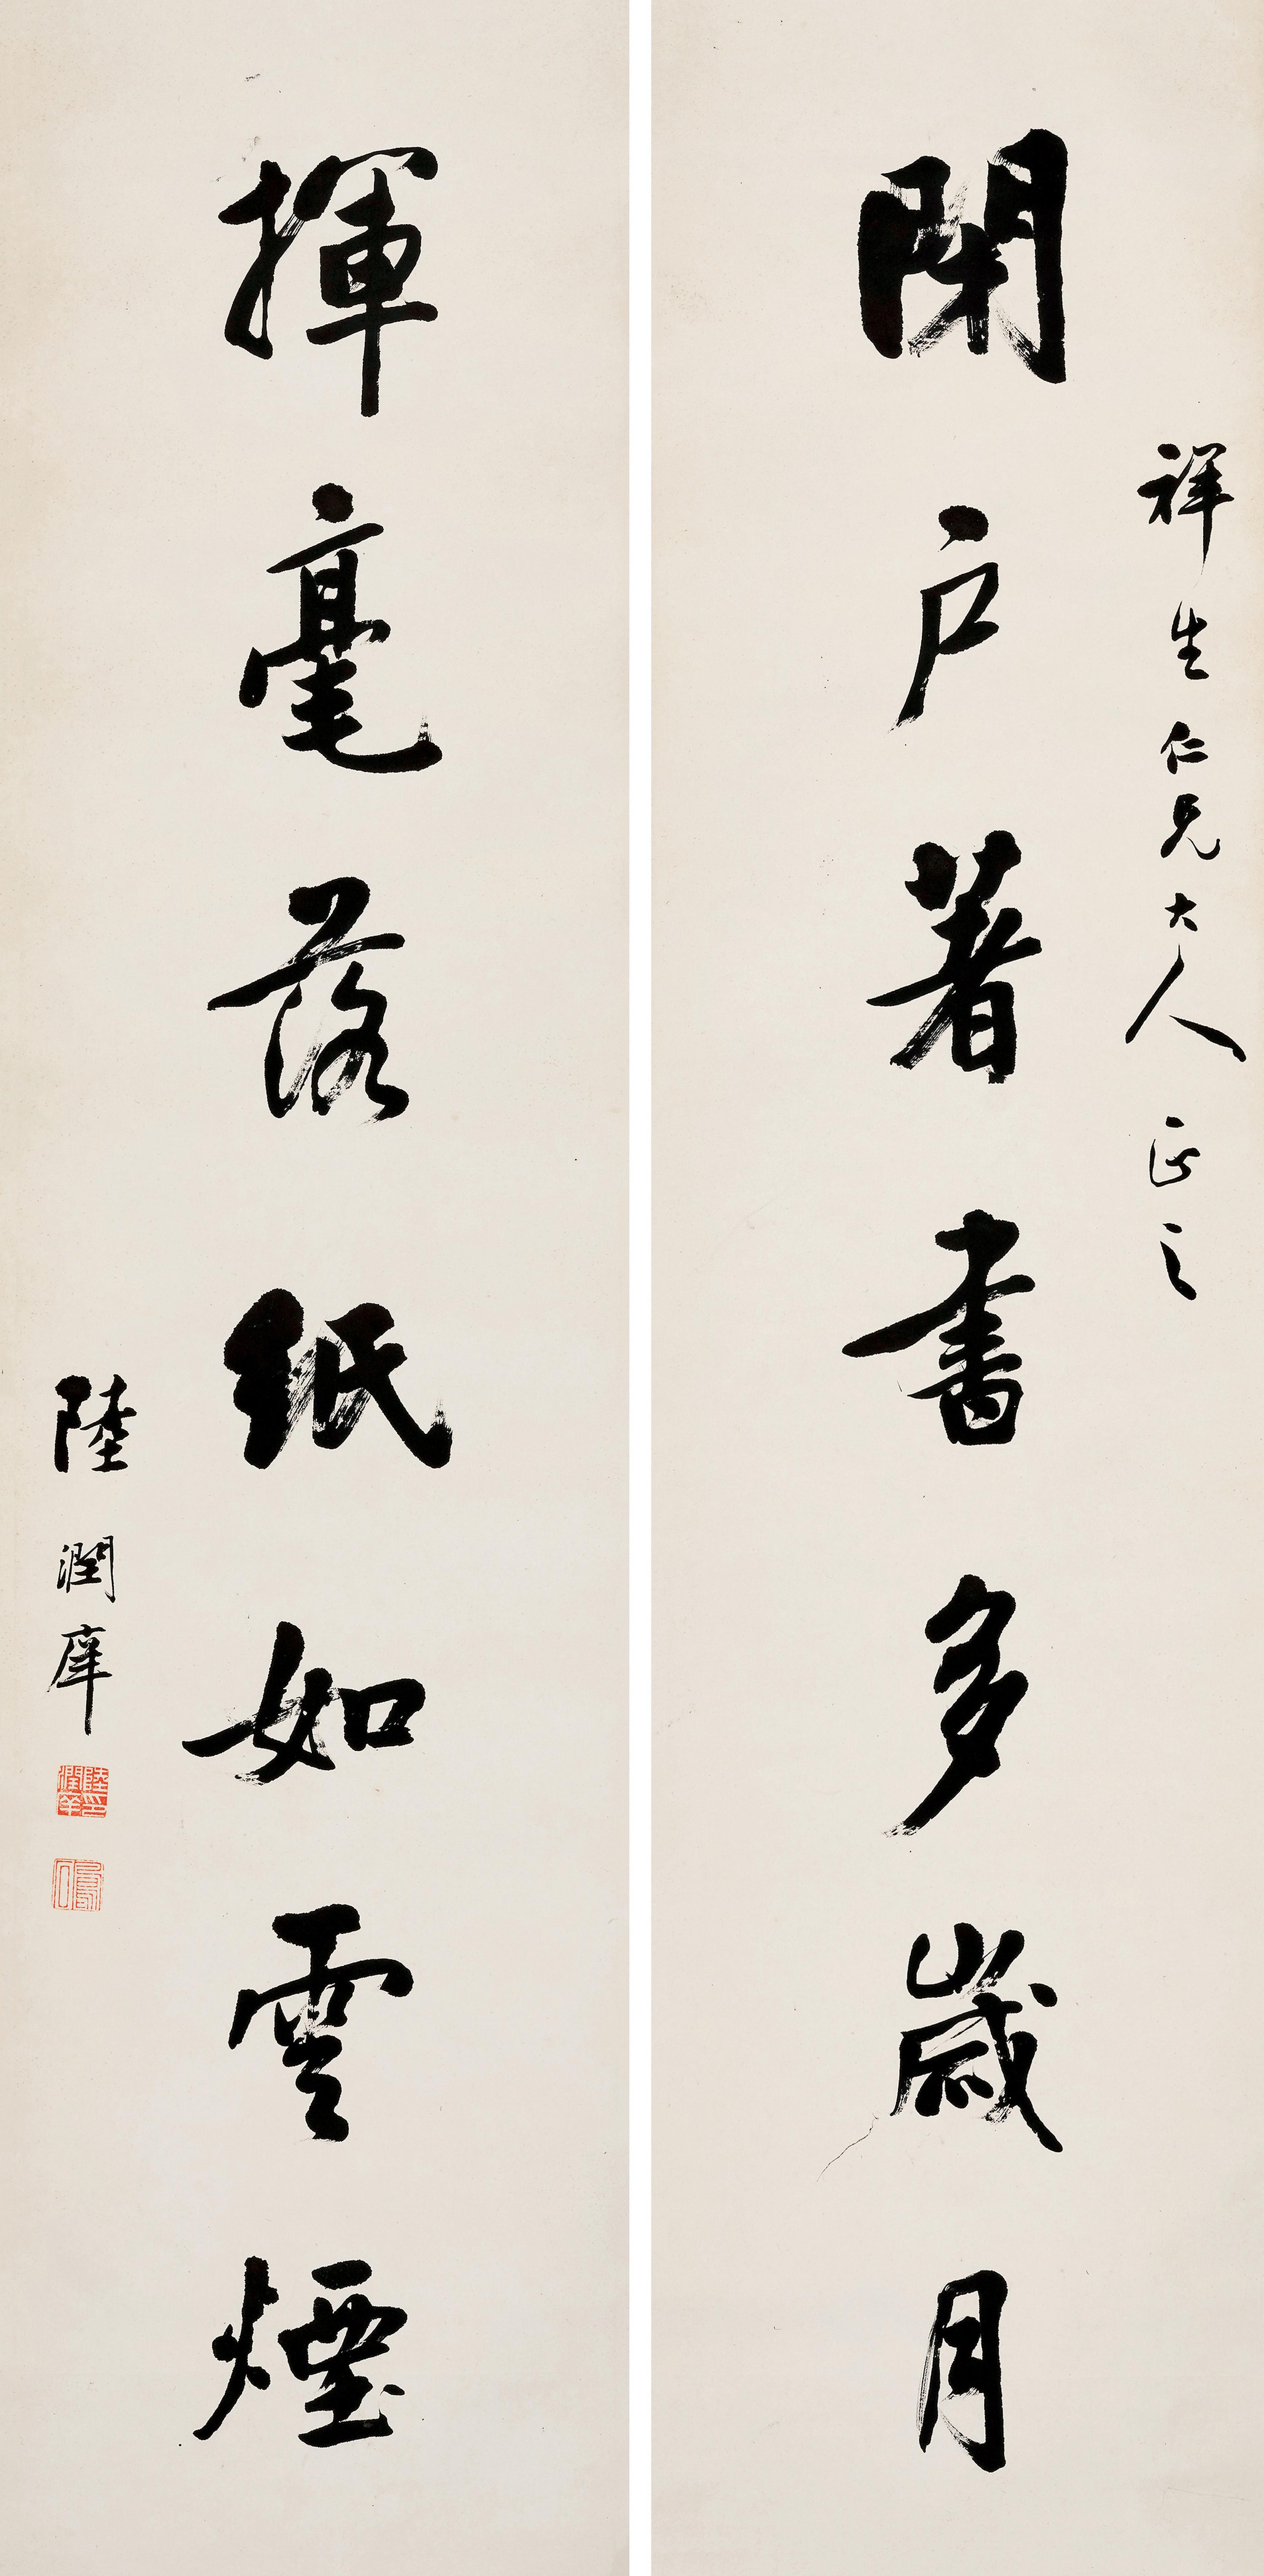 祥生仁兄大人正之
閉户著書多歲月
揮毫落紙如雲煙
陸潤庠
陸潤庠印
鳳石